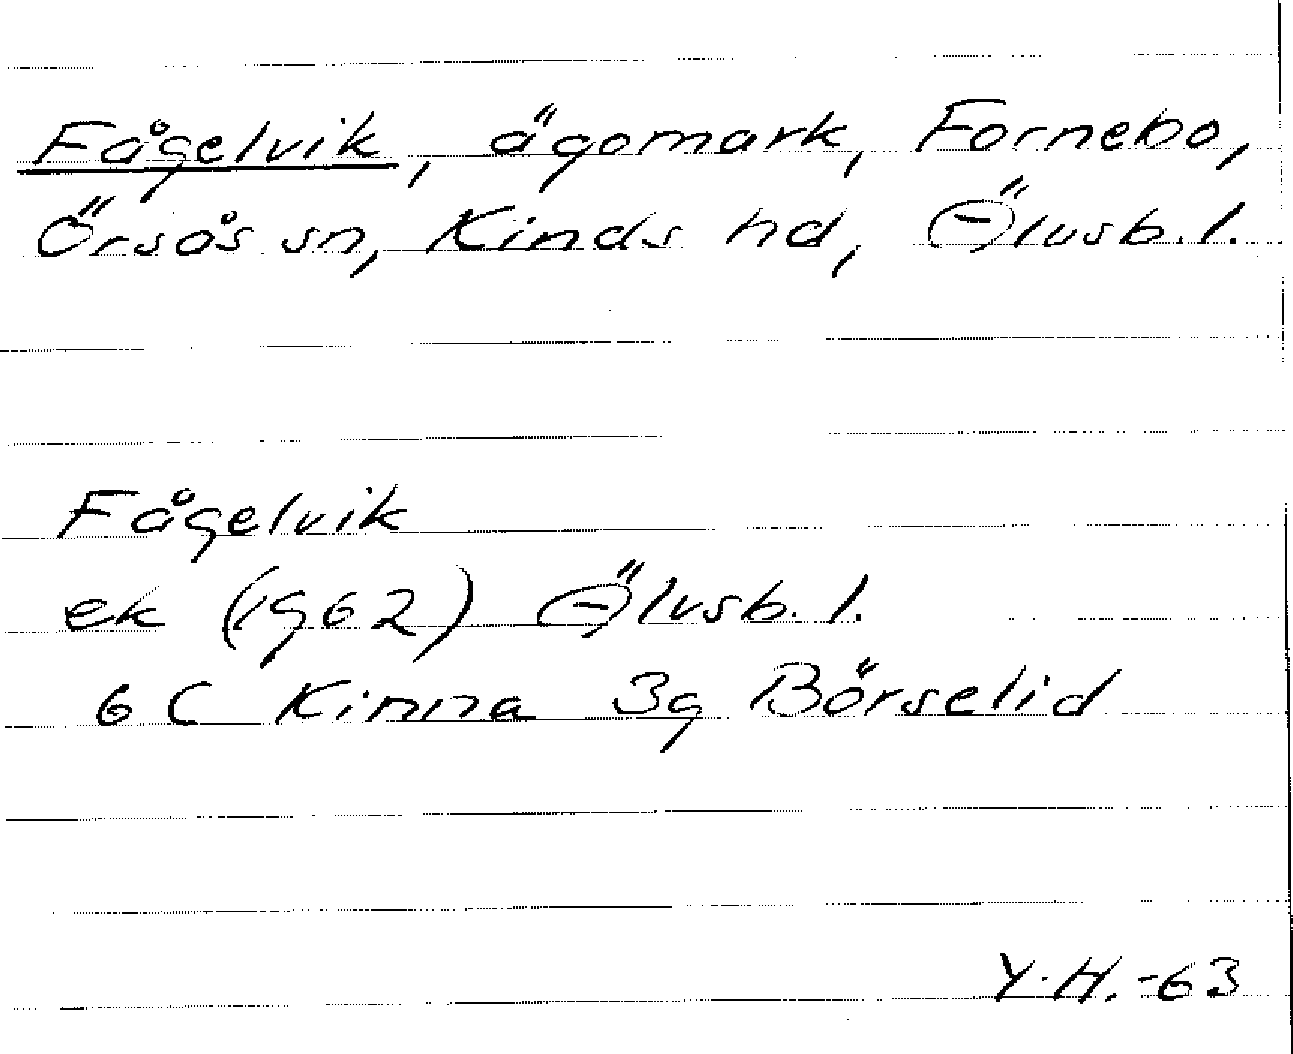 Fågelvik, ägomark, Fornebo,
Örsås sn, Kinds hd, Älvsb. l.
Fågelvik
ek (1962) Älvsb. l.
6 C Kinna 3g Börselid
Y.H.-63